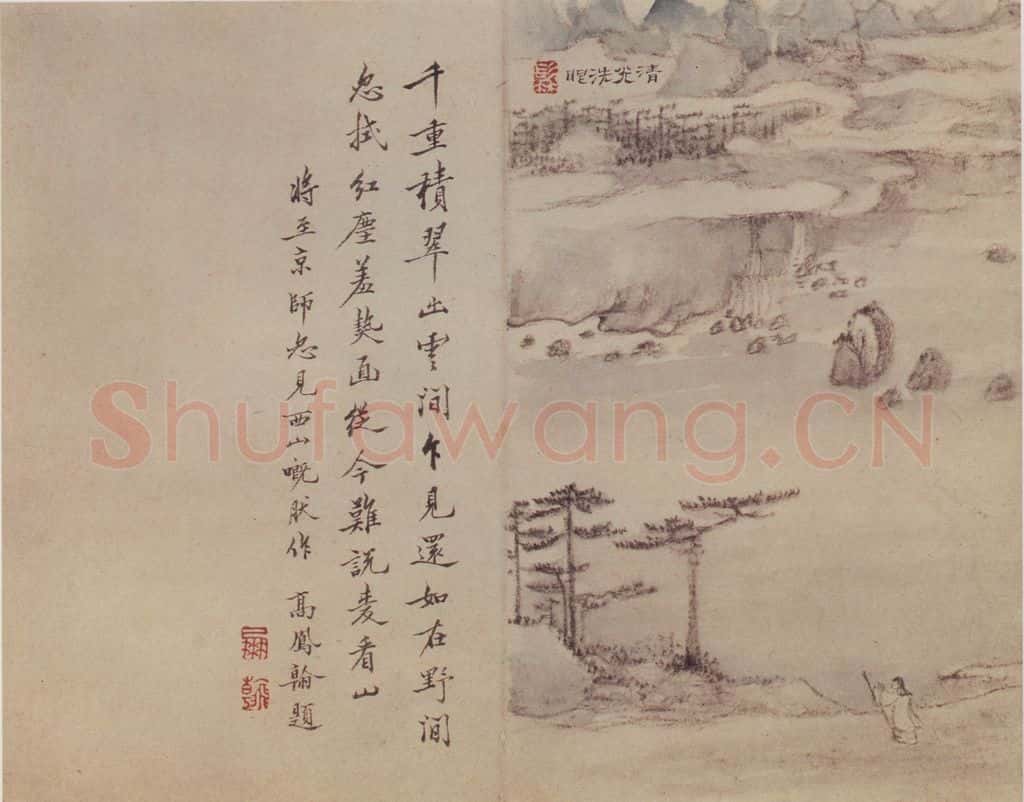 清光洗眼
千重積翠出雲間乍見還如在野間
忽拭紅塵羞熱面從今難説愛看山
將至京師忽見西山嘅肰作 高鳳翰題
Shufawang.CN